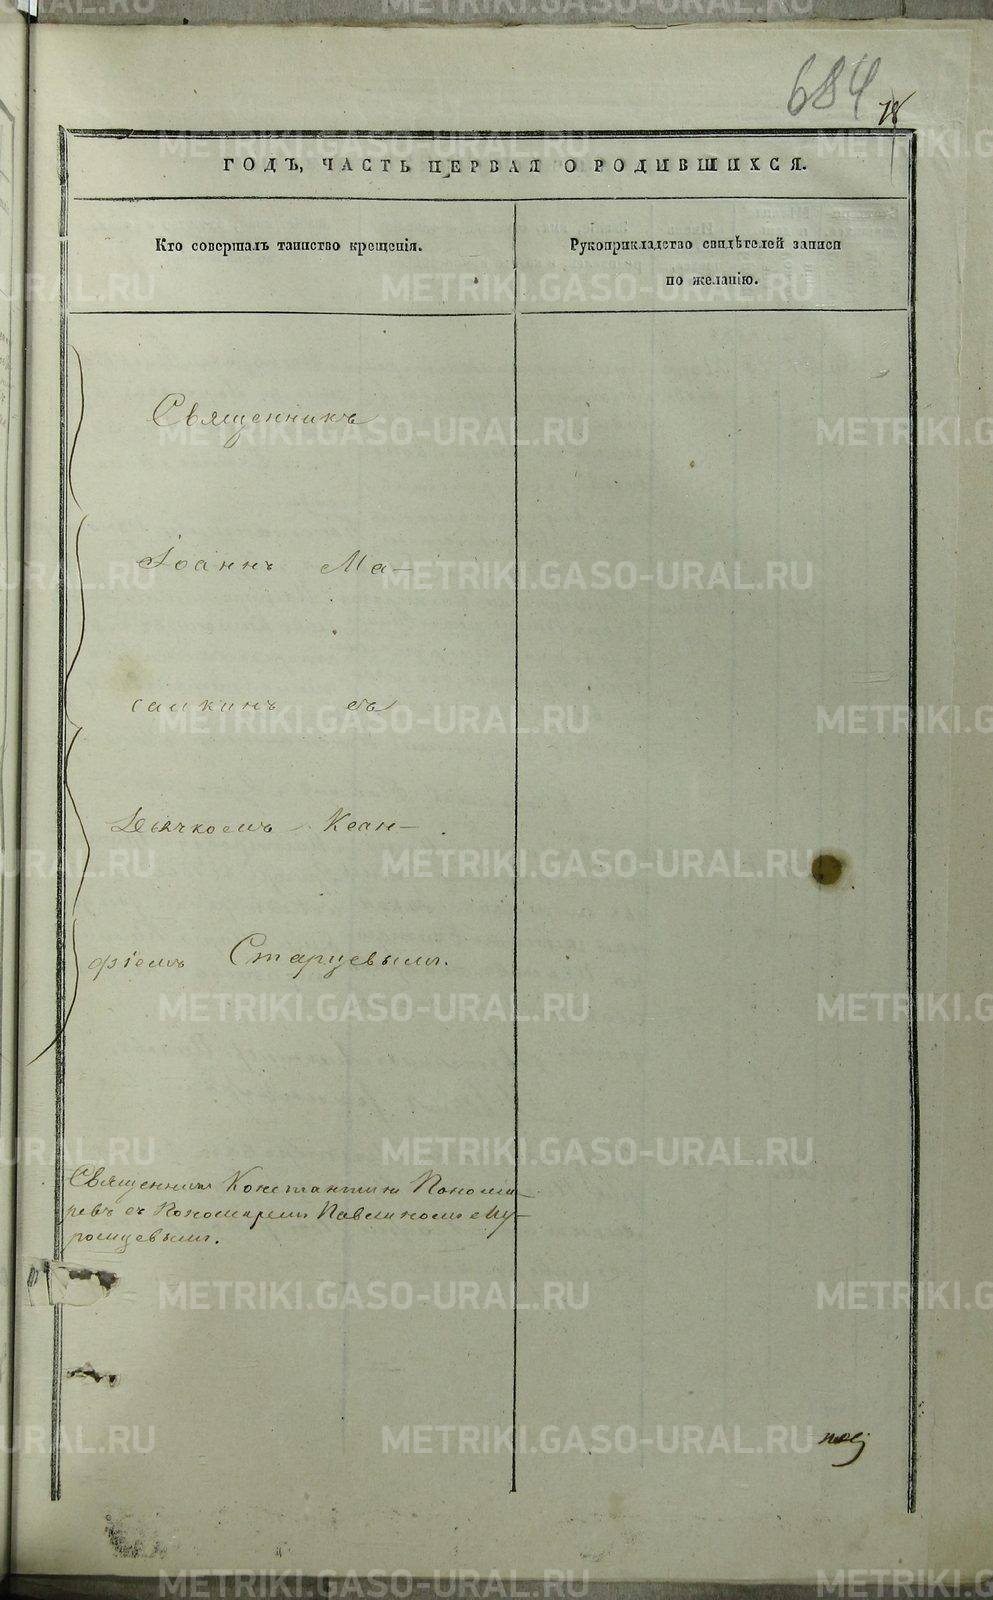 684
18
ГОДЪ, ЧАСТЬ ПЕРВАЯ О РОДИВШИХСЯ.
Кто совершалъ таинство крещенія.
Рукоприкладство свидѣтелей записи
по желанію.
Священникъ
Іоаннъ Ма-
самкинъ съ
Дьячкомъ Ксан-
фіемъ Старцевымъ.
Священникъ Константинъ Понома-
ревъ съ Пономаремъ Павлиномъ Му-
ромцевымъ.
METRIKI.GASO-URAL.RU